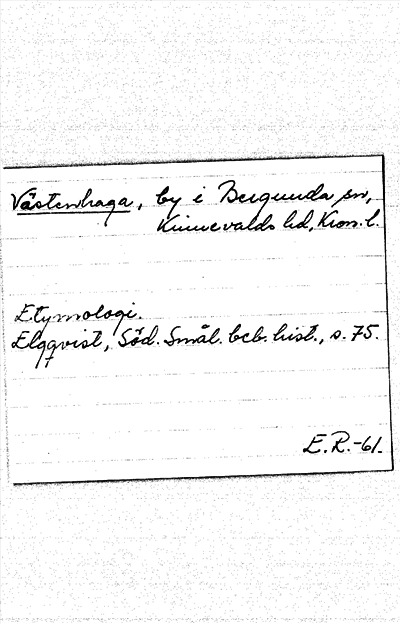 Västenhaga, by i Bergunda sn,
Kinnevalds hd, Kron. l.
Etymologi.
Elgqvist, Söd. Smål. beb. hist., s. 75.
E. R. -61.